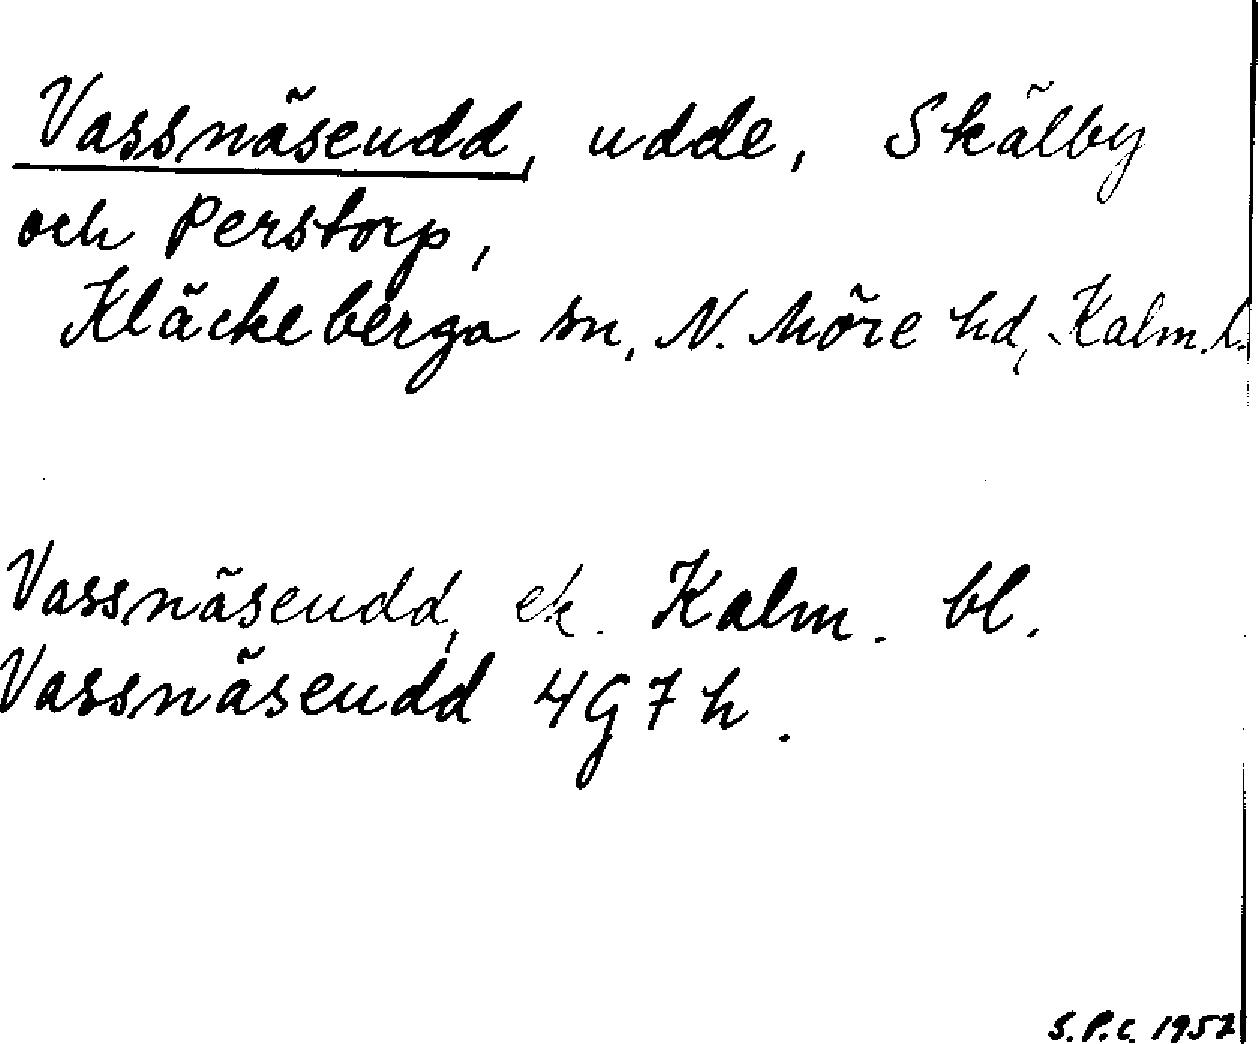 Vassnäseudd, udde, Skälby
och Perstorp,
Kläckeberga sn, N. Möre hd, Kalm. l.
Vassnäseudd, ek. Kalm. bl.
Vassnäseudd 4G7h.
S.P.C. 1957